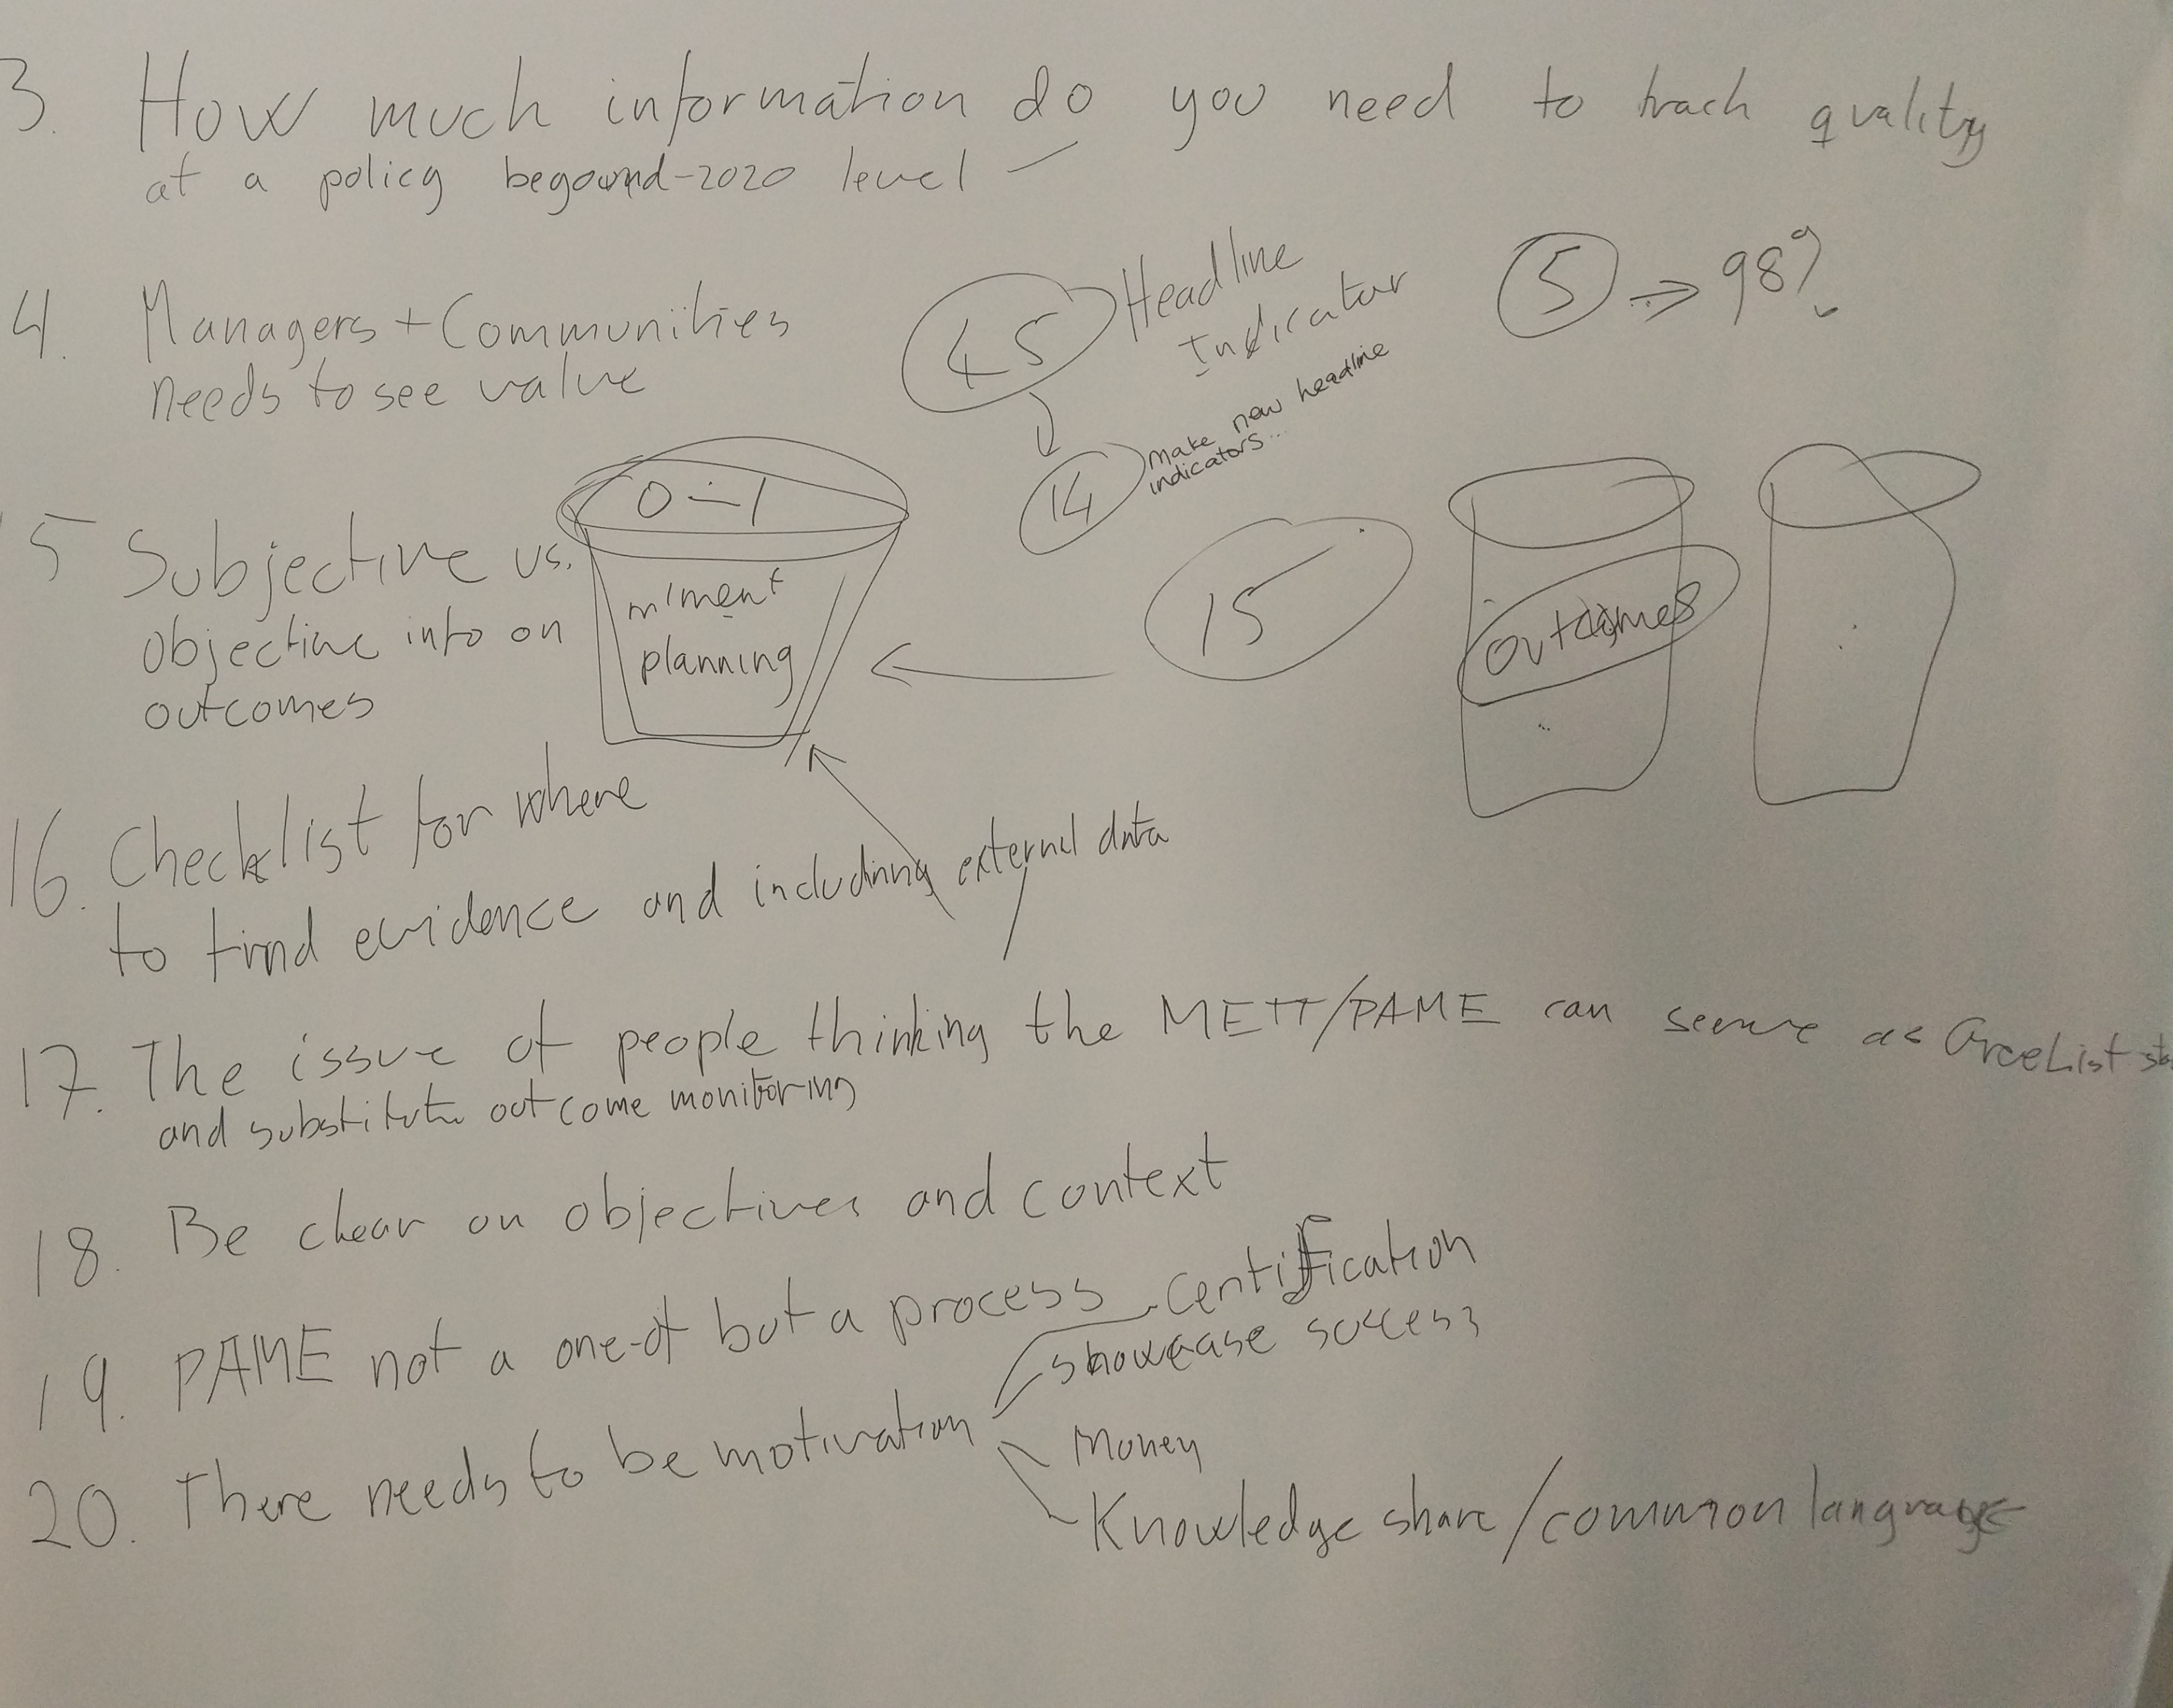 3. How much information do you need to track quality
at a policy begound-2020 level
4. Managers + Communities
needs to see value
45 Headline
Indicator
5 → 98%
14 make new headline
indicators...
5 Subjective vs.
objective into on
outcomes
0-1
m'ment
planning
15
outcomes
16. Checklist for where
to find evidence and including external data
17. The issue of people thinking the METT/PAME can serve as GreeList
and substitute outcome monitoring
18. Be clear on objectives and context
19. PAME not a one-of but a process
20. There needs to be motivation
Certification
showcase success
Money
Knowledge share/common language